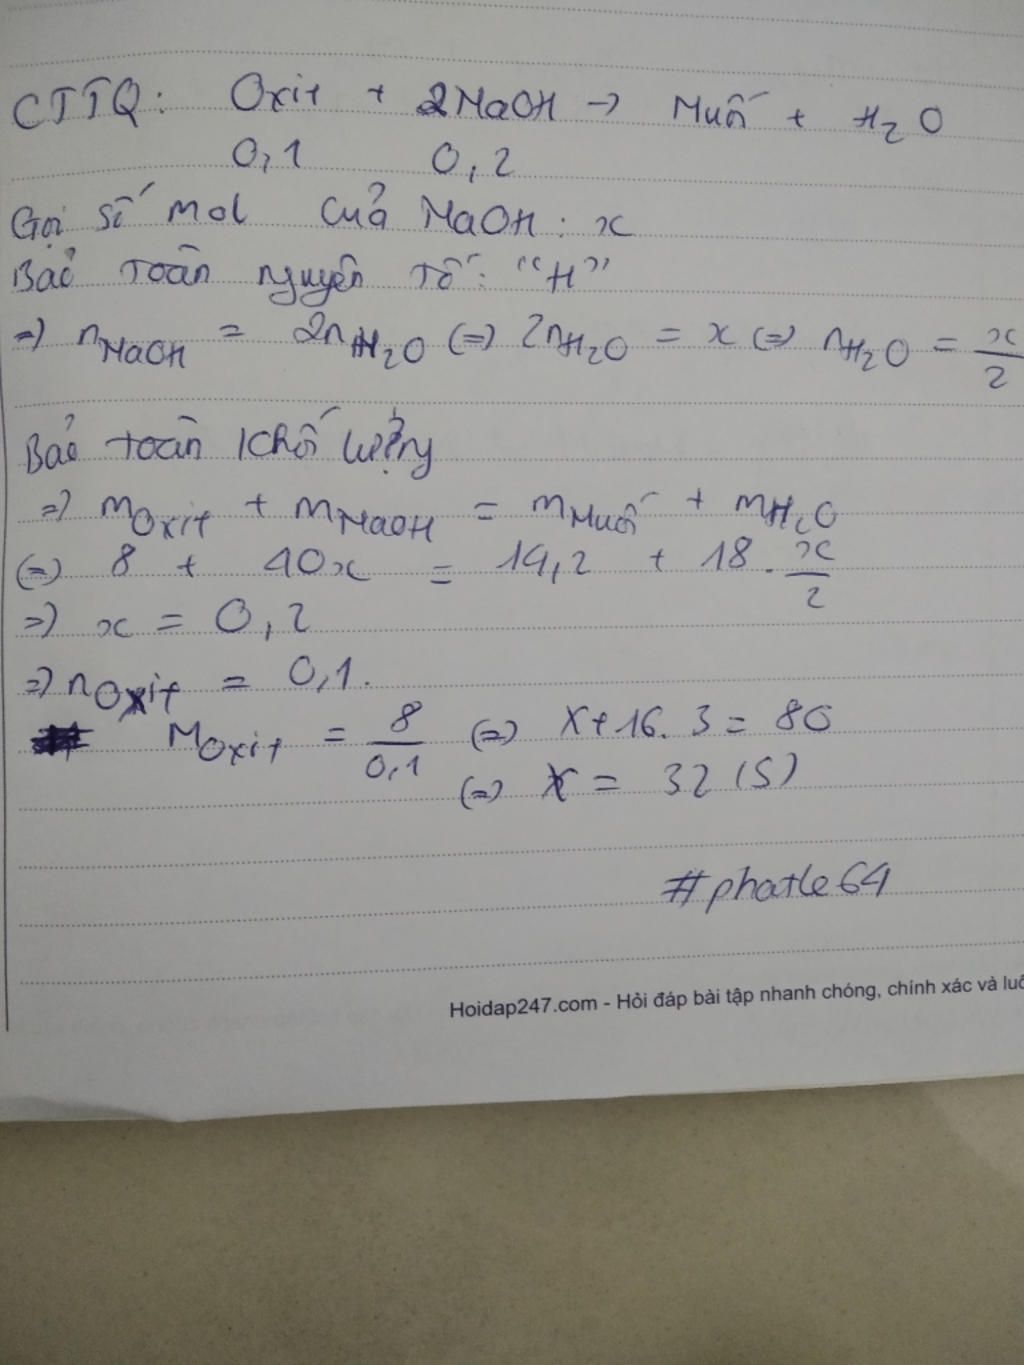 CTTQ: Oxit + 2NaOH → Muối + H₂O
0,1 0,2
Gọi số mol của NaOH: x
Bảo toàn nguyên tố: "H"
=> nNaOH = 2nH₂O (=) 2nH₂O = x (=) nH₂O = x/2
Bảo toàn khối lượng
=> mOxit + mNaOH = mMuối + mH₂O
(=) 8 + 40x = 14,2 + 18 . x/2
=> x = 0,2
=> nOxit = 0,1.
MOxit = 8/0,1 (=) X+16.3 = 80
(=) X = 32 (S)
#phatle64
Hoidap247.com - Hỏi đáp bài tập nhanh chóng, chính xác và